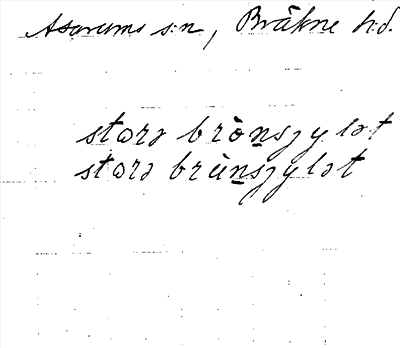 Asarums s:n, Bräkne h.d.
starə brònsʒylət
starə brùnsʒylət